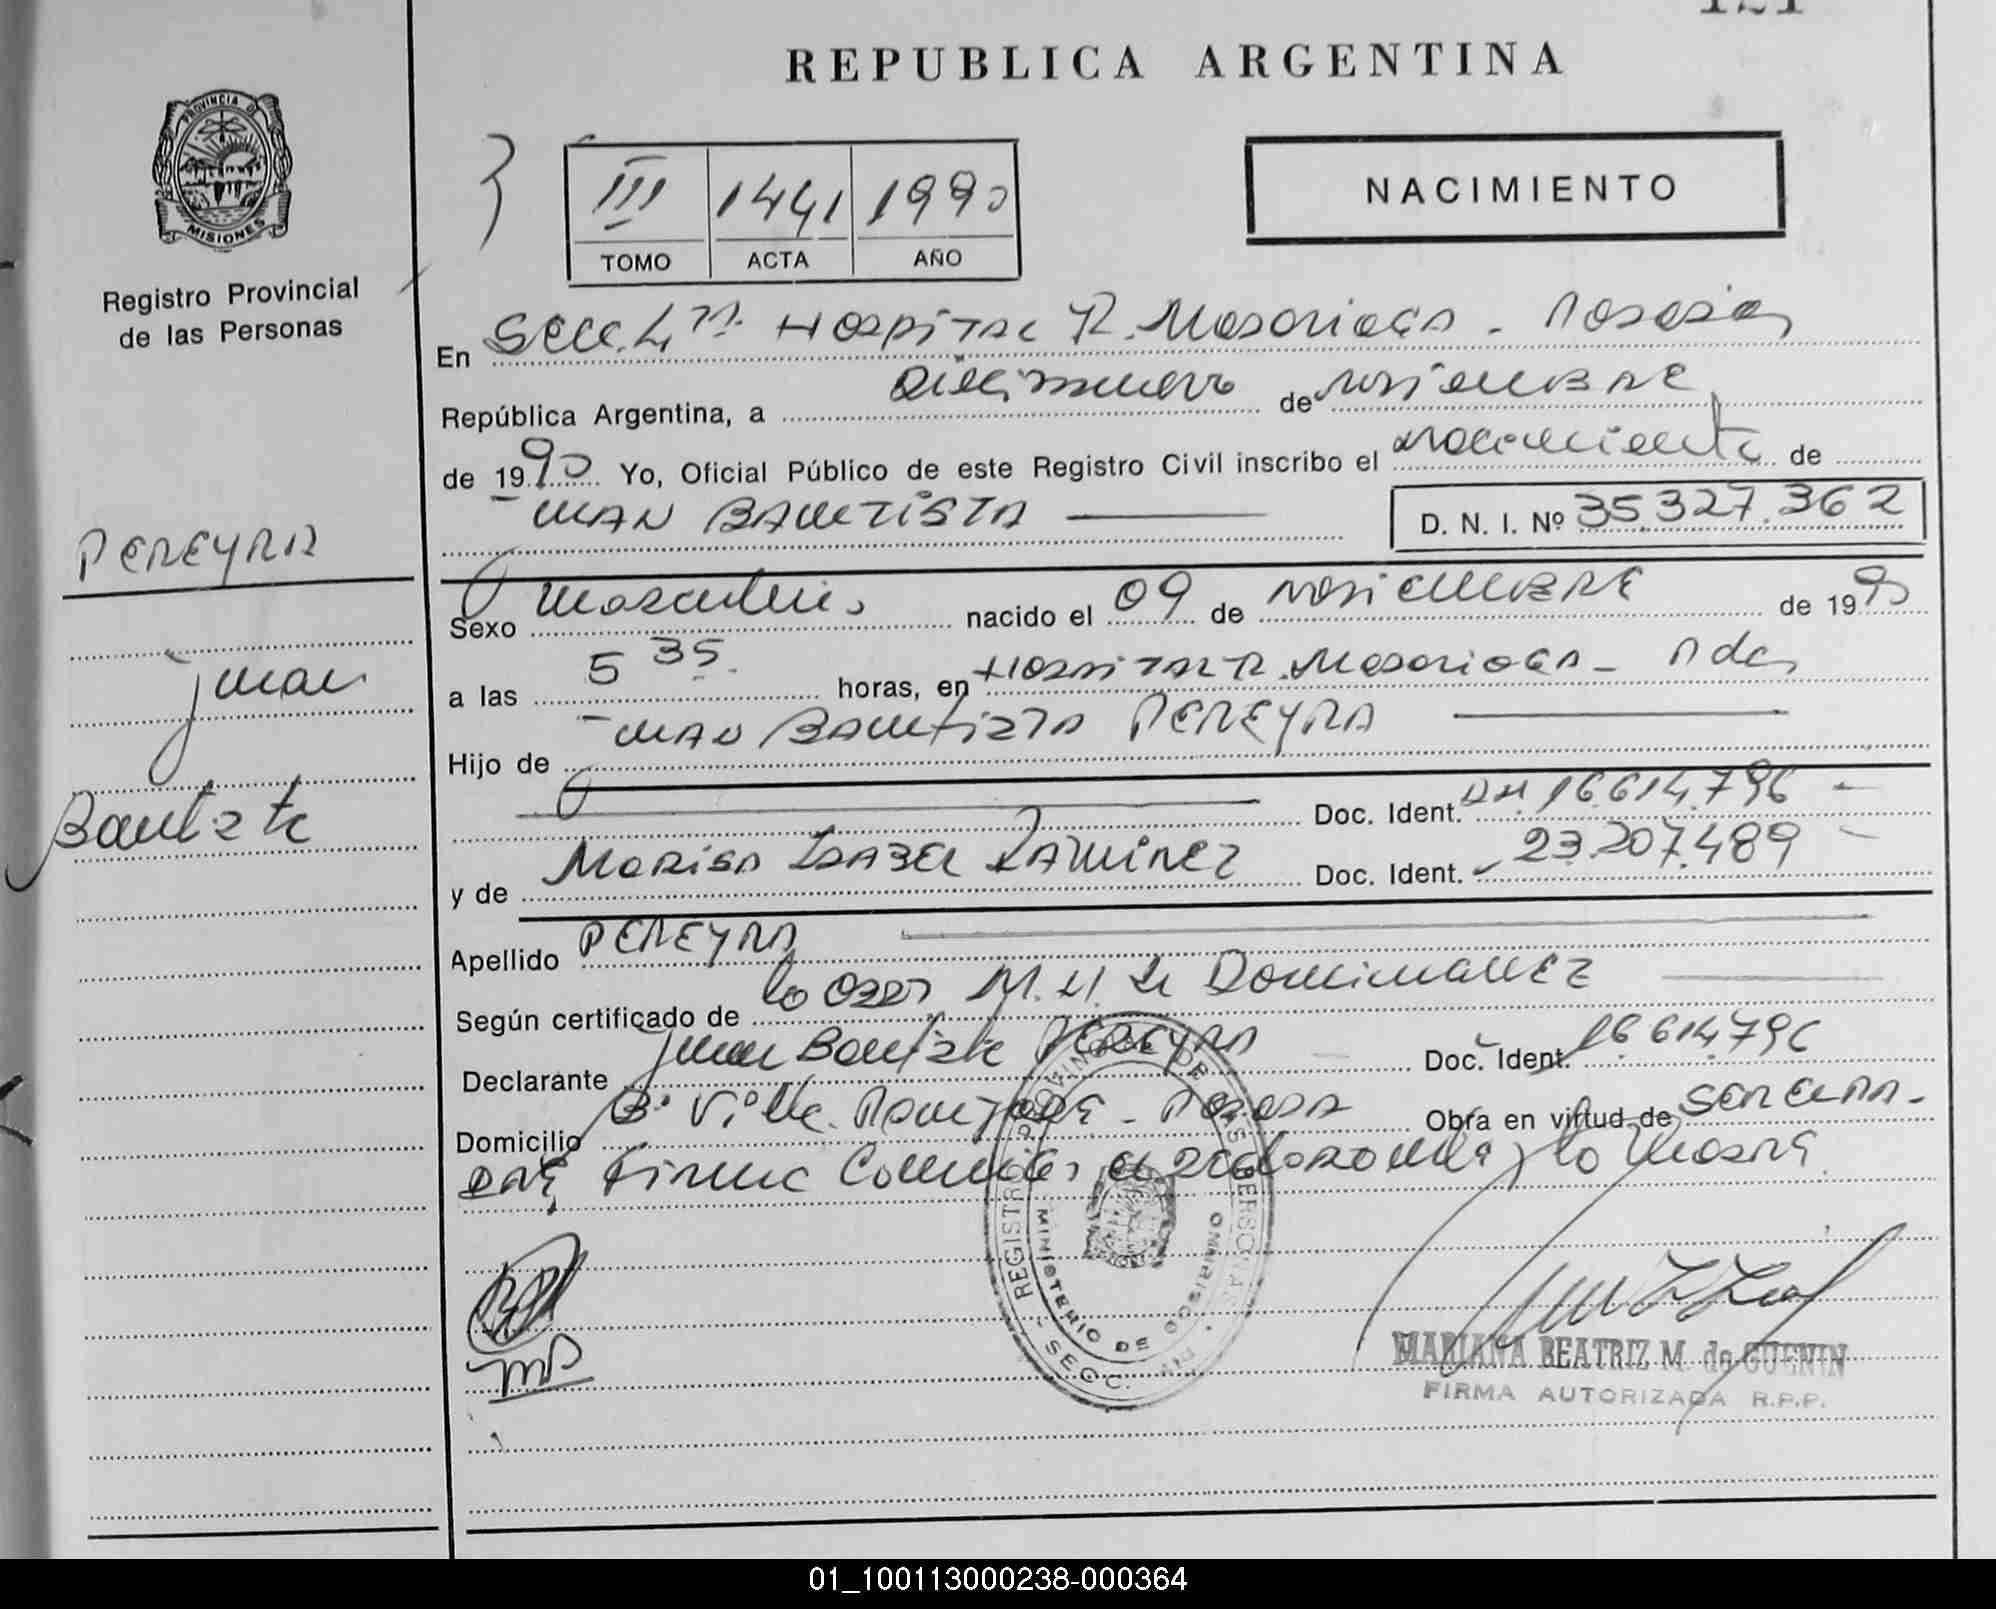 REPUBLICA ARGENTINA
PROVINCIA DE
MISIONES
Registro Provincial
de las Personas
III 1441 1990
TOMO ACTA AÑO
NACIMIENTO
En Secc. 4ta. Hospital R. Madariaga - Posadas
República Argentina, a diecinueve de noviembre
de 1990 Yo, Oficial Público de este Registro Civil inscribo el nacimiento de
Juan Bautista D. N. I. Nº 35.327.362
PEREYRA
Juan
Bautista
Sexo masculino nacido el 09 de noviembre de 1990
a las 5 35 horas, en Hospital R. Madariaga - Pdas
Hijo de Juan Bautista PEREYRA
Doc. Ident. DNI 16.614.796
y de Marisa Isabel Ramirez Doc. Ident. 23.207.489
Apellido PEREYRA
Según certificado de la Obst. M. de Dominguez
Declarante Juan Bautista PEREYRA Doc. Ident. 16.614.796
Domicilio Bº Villa - Posadas Obra en virtud de ser el pa-
dre, firma
REGISTRO PROVINCIAL DE LAS PERSONAS
MINISTERIO DE GOBIERNO
SECC.
MARIANA BEATRIZ M. de GUENIN
FIRMA AUTORIZADA R.P.P.
01_100113000238-000364